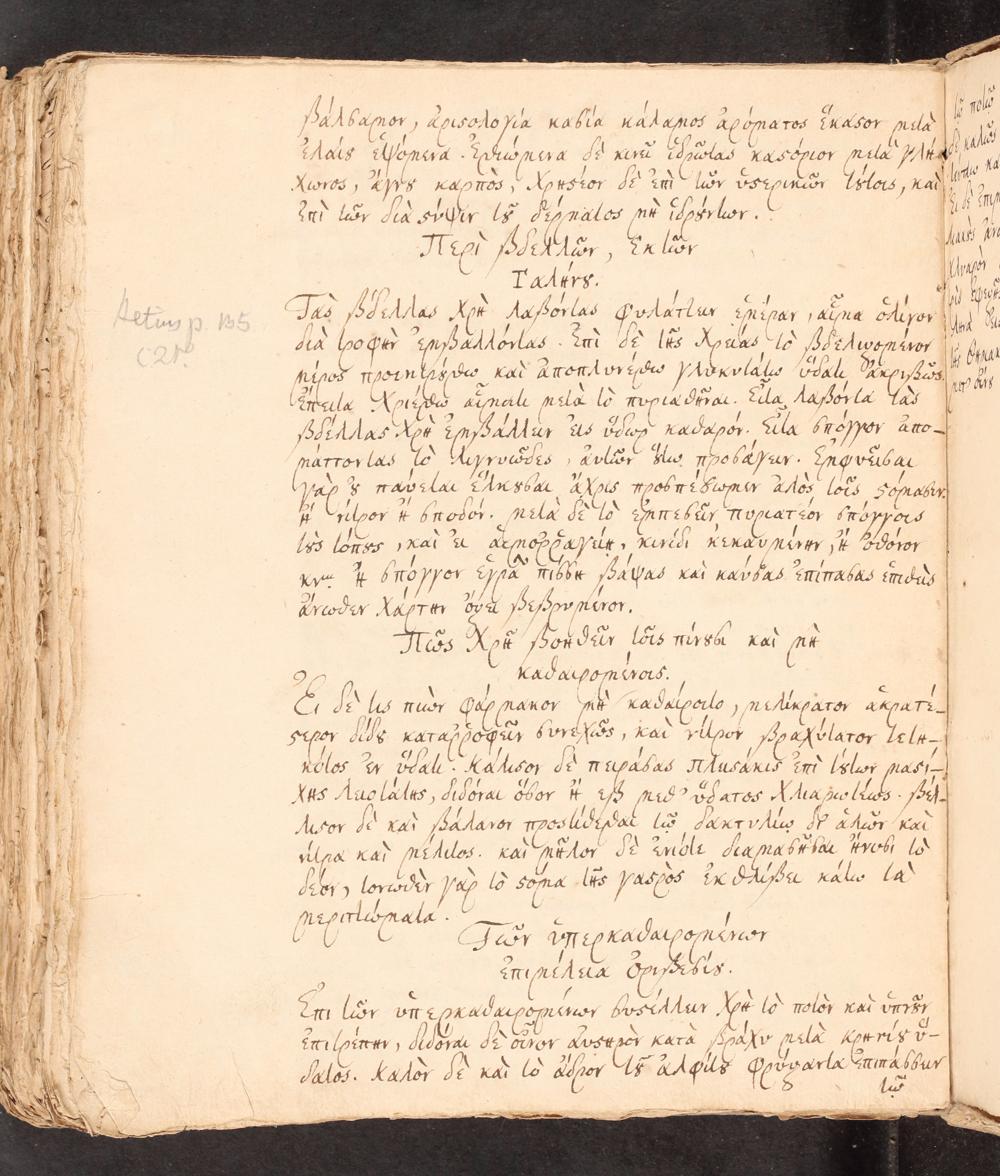 βάλσαμον, ἀριστολοχία κασία κάλαμος ἀρώματος ἕκαστον μετὰ
ἐλαίου ἑψόμενα. Ἐσθιόμενα δὲ κινεῖ ἱδρῶτας καστόριον μετὰ γλή-
χωνος, ἄγνου καρπὸς, χρηστέον δὲ ἐπὶ τῶν ὑστερικῶν τούτοις, καὶ
ἐπὶ τῶν διὰ στύψιν τοῦ δέρματος μὴ ἱδρούντων.
Περὶ βδελλῶν, ἐκ τῶν
Γαλήνου.
Τὰς βδέλλας χρὴ λαβόντας φυλάττειν ἡμέραν, αἷμα ὀλίγον
διὰ τροφὴν ἐμβαλλόντας. Ἐπὶ δὲ τῆς χρείας τὸ βδελλισόμενον
μέρος προεκνιτρούσθω καὶ ἀποπλυνέσθω γλυκυτάτῳ ὕδατι ἀκριβῶς.
ἔπειτα χριέσθω αἵματι μετὰ τὸ πυριαθῆναι. Εἶτα λαβόντα τὰς
βδέλλας χρὴ ἐμβάλλειν εἰς ὕδωρ καθαρόν. Εἶτα σπόγγον ἀπο-
μάττοντας τὸ λιγνυῶδες, αὐτῶν οὕτω προσάγειν. Ἐμφυεῖσαι
γὰρ οὐ παύεται ἕλκουσαι ἄχρις προσπέσωμεν ἁλὸς τοῖς στόμασιν.
ἢ νίτρον ἢ σποδόν. μετὰ δὲ τὸ ἐμπεσεῖν πυριατέον σπόγγοις
τοὺς τόπους, καὶ εἰ αἱμορραγείη, κικίδι κεκαυμένην, ἢ ὀθόνον
ἢ σπόγγον ὑγρᾷ πίσσῃ βάψας καὶ καύσας ἐπίπασας ἐπιθεὶς
ἄνωθεν χάρτην ὄξει βεβρεγμένον.
Πῶς χρὴ βοηθεῖν τοῖς πίνουσι καὶ μὴ
καθαιρομένοις.
Εἰ δέ τις πιὼν φάρμακον μὴ καθαίροιτο, μελίκρατον ἀκρατέ-
στερον δίδου καταρροφεῖν συνεχῶς, καὶ νίτρου βραχύτατον τετη-
κότος ἐν ὕδατι. κάλλιστον δὲ πειράσας πλειστάκις ἐπὶ τούτων μαστί-
χης λειοτάτης, διδόναι ὅσον ἢ μεθ' ὕδατος χλιαρωτέως. βέλ-
τιστον δὲ καὶ βάλανον προστίθεσθαι τῷ δακτυλίῳ δι' ἁλῶν καὶ
νίτρα καὶ μέλιτος. καὶ μῆλον δὲ ἐνίοτε διαμασῆσαι ἤνυσι τὸ
δέον, τονωθὲν γὰρ τὸ στόμα τῆς γαστρὸς ἐκθλίβει κάτω τὰ
περιττώματα.
Τῶν ὑπερκαθαιρομένων
ἐπιμέλεια ὀριβασίου.
Ἐπὶ τῶν ὑπερκαθαιρομένων συστέλλειν χρὴ τὸ ποτὸν καὶ ὑπνοῦν
ἐπιτρέπειν, διδόναι δὲ οἶνον αὐστηρὸν κατὰ βραχὺ μετὰ κρηναίου ὕ-
δατος. καλὸν δὲ καὶ τὸ ἁδρὸν τοῦ ἀλφίτου φρύγαντα ἐπιπάσσειν
τῷ
Aetius p. 135
C 21